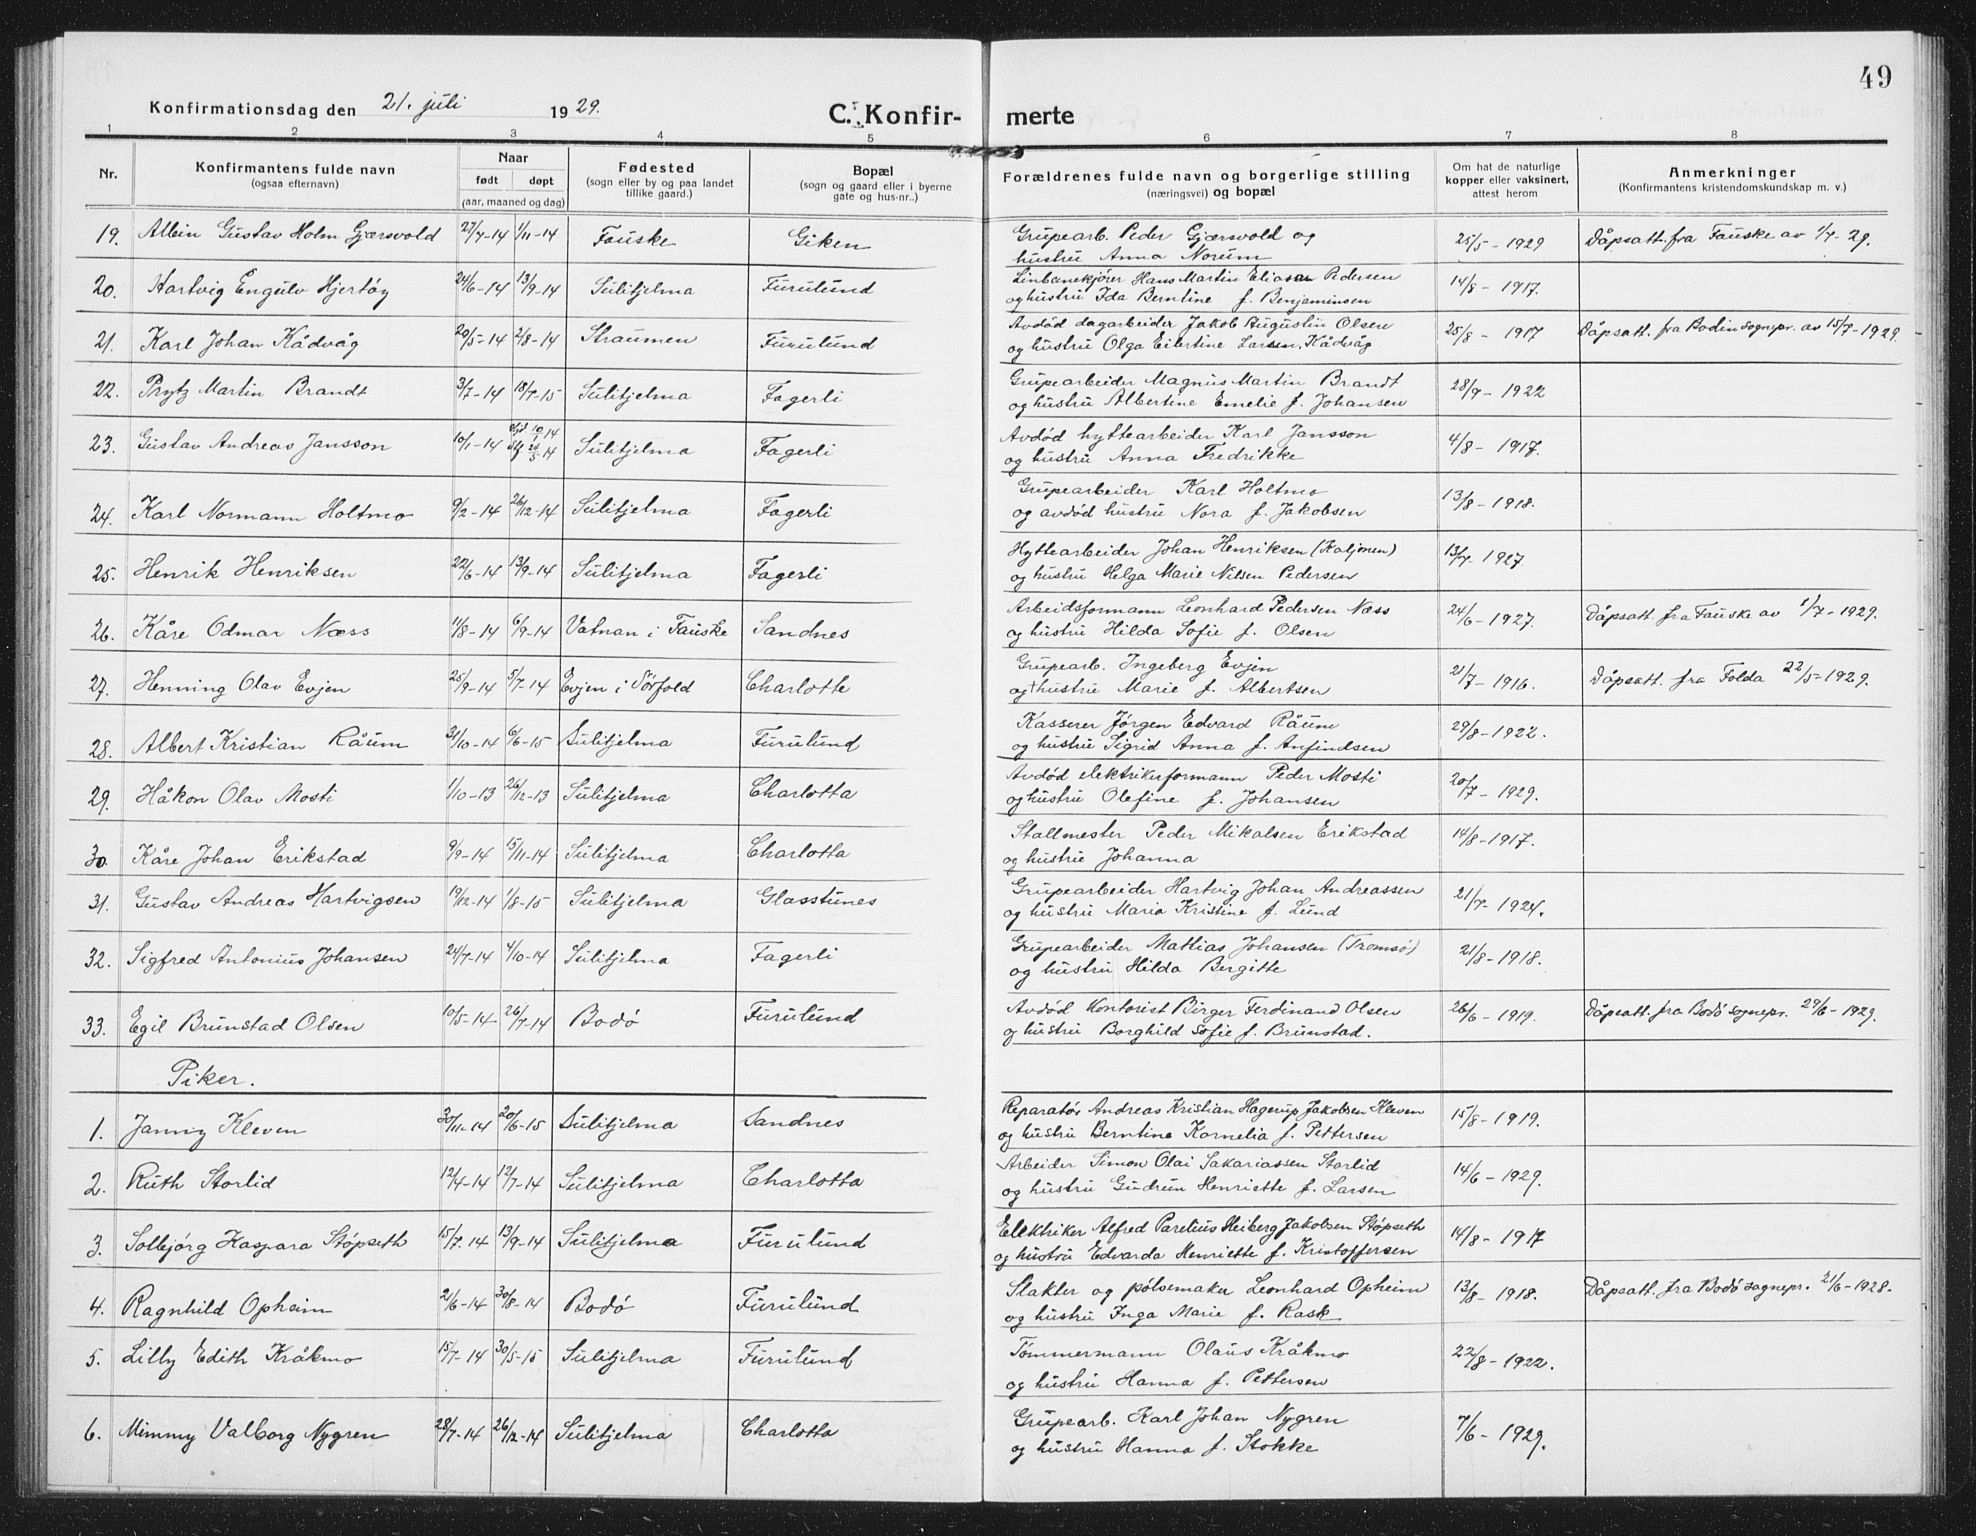 49
Konfirmationsdag den 21. juli 1929.
C. Konfirmerte
1 2 3 4 5 6 7 8
Nr.
Konfirmantens fulde navn
(ogsaa efternavn)
Naar
født døpt
(aar, maaned og dag)
Fødested
(sogn eller by og paa landet
tillike gaard.)
Bopæl
(sogn og gaard eller i byerne
gate og hus-nr..)
Forældrenes fulde navn og borgerlige stilling
(næringsvei) og bopæl
Om hat de naturlige
kopper eller vaksinert,
attest herom
Anmerkninger
(Konfirmantens kristendomskundskap m. v.)
19. Albin Gustav Holm Gjærsvold 27/4-14 1/11-14 Fauske Giken Grupearb. Peder Gjærsvold og 25/5-1929 Dåpsatt. fra Fauske av 1/7-29.
hustru Anna Norum
20. Hartvig Engulv Hjertøy 24/6-14 13/9-14 Sulitjelma Furulund Linbanekjører Hans Martin Eliasen Pedersen 14/8-1917.
og hustru Ida Berntine f. Benjaminsen
21. Karl Johan Kådvåg 20/5-14 2/8-14 Straumen Furulund Avdød dagarbeider Jakob Augustin Olsen 25/8-1917 Dåpsatt. fra Bodin sognepr. av 15/7-1929.
og hustru Olga Eilertine Larsen, Kådvåg
22. Prytz Martin Brandt 3/7-14 18/7-15 Sulitjelma Fagerli Grupearbeider Magnus Martin Brandt 28/7-1922
og hustru Albertine Emelie f. Johansen
23. Gustav Andreas Jansson 10/1-14 hjd. 10/1-14 stf. 24/5-14 Sulitjelma Fagerli Avdød hyttearbeider Karl Jansson 4/8-1917.
og hustru Anna Fredrikke
24. Karl Normann Holtmo 9/2-14 26/12-14 Sulitjelma Fagerli Grupearbeider Karl Holtmo 13/8-1918.
og avdød hustru Nora f. Jakobsen
25. Henrik Henriksen 22/6-14 13/9-14 Sulitjelma Fagerli Hyttearbeider Johan Henriksen (Kaljonen) 13/7-1927
og hustru Helga Marie Nilsen Pedersen
26. Kåre Odmar Næss 11/8-14 6/9-14 Vatnan i Fauske Sandnes Arbeidsformann Leonhard Pedersen Næss 24/6-1927. Dåpsatt. fra Fauske av 1/7-1929.
og hustru Hilda Sofie f. Olsen
27. Henning Olav Evjen 25/9-14 5/7-14 Evjen i Sørfold Charlotte Grupearb. Ingeberg Evjen 21/7-1916. Dåpsatt. fra Folda 22/5-1929.
og hustru Marie f. Albertsen
28. Albert Kristian Råum 31/10-14 6/6-15 Sulitjelma Furulund Kasserer Jørgen Edvard Råum 29/8-1922.
og hustru Sigrid Anna f. Anfindsen
29. Håkon Olav Mosti 1/10-13 26/12-13 Sulitjelma Charlotta Avdød elektrikerformann Peder Mosti 20/7-1929.
og hustru Olefine f. Johansen
30. Kåre Johan Erikstad 9/9-14 15/11-14 Sulitjelma Charlotta Stallmester Peder Mikalsen Erikstad 14/8-1917.
og hustru Johanna
31. Gustav Andreas Hartvigsen 19/12-14 1/8-15 Sulitjelma Glasstunes Grupearbeider Hartvig Johan Andreassen 21/7-1924.
og hustru Maria Kristine f. Lund
32. Sigfred Antonius Johansen 24/7-14 4/10-14 Sulitjelma Fagerli Grupearbeider Mathias Johansen (Tromsø) 21/8-1918.
og hustru Hilda Bergitte
33. Egil Brunstad Olsen 10/5-14 26/7-14 Bodø Furulund Avdød kontorist Birger Ferdinand Olsen 26/6-1919. Dåpsatt. fra Bodø sognepr. 29/6-1929.
og hustru Borghild Sofie f. Brunstad.
Piker.
1. Janny Kleven 30/11-14 20/6-15 Sulitjelma Sandnes Reparatør Andreas Kristian Hagerup Jakobsen Kleven 15/8-1919.
og hustru Berntine Kornelia f. Pettersen
2. Ruth Storlid 12/4-14 12/7-14 Sulitjelma Charlotta Arbeider Simon Olai Sakariassen Storlid 14/6-1929.
og hustru Gudrun Henriette f. Larsen
3. Solbjørg Kaspara Støpseth 15/7-14 13/9-14 Sulitjelma Furulund Elektriker Alfred Parelius Heiberg Jakobsen Støpseth 14/8-1917
og hustru Edvarda Henriette f. Kristoffersen
4. Ragnhild Opheim 21/6-14 30/8-14 Bodø Furulund Slakter og pølsemaker Leonhard Opheim 13/8-1918. Dåpsatt. fra Bodø sognepr. 21/6-1928.
og hustru Inga Marie f. Rask
5. Lilly Edith Kråkmo 15/7-14 30/5-15 Sulitjelma Furulund Tømmermann Olaus Kråkmo 22/8-1922.
og hustru Hanna f. Pettersen
6. Mimmy Valborg Nygren 28/7-14 26/12-14 Sulitjelma Charlotta Grupearb. Karl Johan Nygren 7/6-1929.
og hustru Hanna f. Stokke